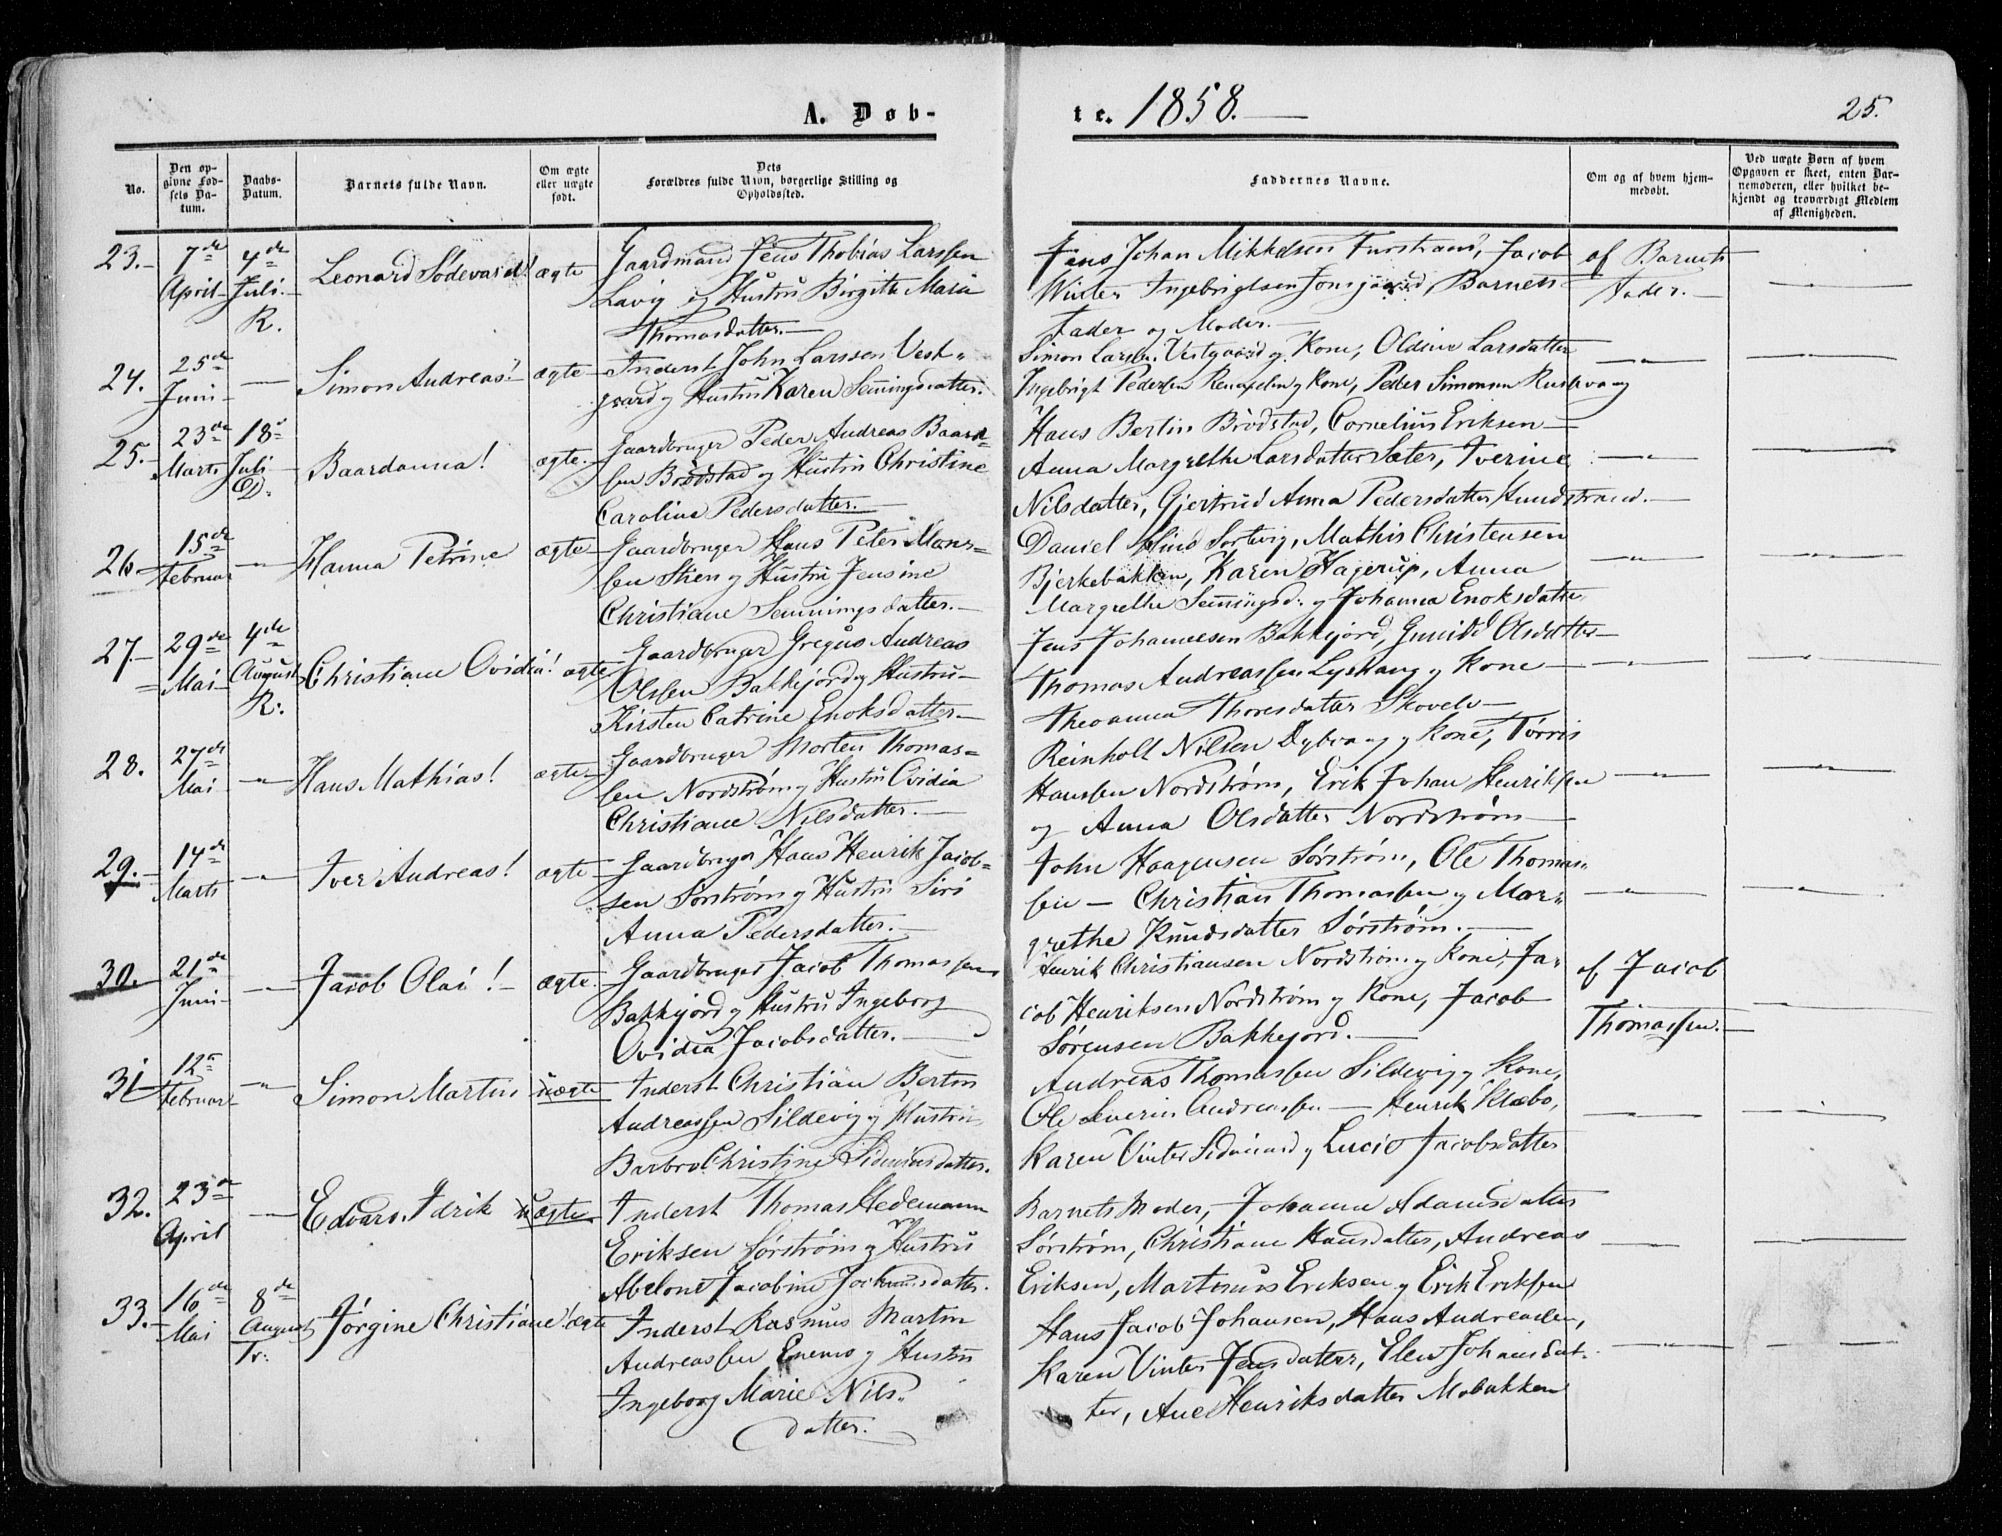 A. Døb-
te. 1858.
25.
No.
Den op-
givne Fød-
sels Da-
tum.
Daabs-
Datum.
Barnets fulde Navn.
Om ægte
eller uægte
født.
Dets
Forældres fulde Navn, borgerlige Stilling og
Opholdssted.
Faddernes Navne.
Om og af hvem hjem-
medøbt.
Ved uægte Børn af hvem
Opgaven er skeet, enten Bar-
nemoderen, eller hvilket be-
kjendt og troværdigt Medlem
af Menigheden.
23.
7de
April
4de
Juli
R.
Leonard Sødevard!
ægte
Gaardmand Jens Thobias Larssen
Lavig og Hustru Birgitte Maria
Thomasdatter.
Jens Johan Mikkelsen Furstrand, Jacob
Winter Ingebrigtsen, Barnets
Fader og Moder.
af Barnets
Fader.
24.
25de
Juni
Simon Andreas!
ægte
Inderst John Larssen Vest-
gaard og Hustru Karen Senningsdatter.
Simon Larsen Vestgaard og Kone, Oldine Larsdatter
Ingebrigt Pedersen og Kone, Peder Simonsen
25.
23de
Marts
18de
Juli
D.
Baardanna!
ægte.
Gaardbruger Peder Andreas Baard-
sen Brødstad og Hustru Christine
Carolina Pedersdatter.
Hans Bertin Brødstad, Cornelius Eriksen
Anna Margrethe Larsdatter Sæter, Iverine
Nilsdatter, Gjertrud Anna Pedersdatter Hundstrand.
26
15de
Februar
Hanna Petrine
ægte
Gaardbruger Hans Peter Mons-
sen Stien og Hustru Jensine
Christiane Senningsdatter.
Daniel Sortvig, Mathis Christensen
Bjerkebakken, Karen Hagerup, Anna
Margrethe Senningsd. og Johanna Enoksdatter
27.
29de
Mai
4de
August
R.
Christiane Ovidia!
ægte
Gaardbruger Gregus Andreas
Olsen Bakkejord og Hustru
Kirsten Catrine Enoksdatter
Jens Johannesen Bakkejord, Gunild Olsdatter
Thomas Andreassen Lyshaug og Kone
Theoanna Thoresdatter Skovelv
28.
27de
Mai
Hans Mathias!
ægte
Gaardbruger Morten Thomas-
sen Nordstrøm og Hustru Ovidia
Christiane Nilsdatter.
Reinholt Nilsen Dybvaag og Kone, Tørris
Hanssen Nordstrøm, Erik Johan Henriksen
og Anna Olsdatter Nordstrøm
29.
14de
Marts
Iver Andreas!
ægte
Gaardbruger Hans Henrik Jacob-
sen Sørstrøm og Hustru Siri
Anna Pedersdatter.
John Haagensen Sørstrøm, Ole Thomas-
sen — Christian Thomassen og Mar-
grethe Knudsdatter Sørstrøm.
30.
21de
Juni
Jacob Olai!
ægte.
Gaardbruger Jacob Thomassen
Bakkejord og Hustru Ingeborg
Ovidia Jacobsdatter.
Henrik Christiansen Nordstrøm og Kone, Ja-
cob Henriksen Nordstrøm og Kone, Jacob
Sørensen Bakkejord.
af Jacob
Thomassen.
31
12te
Februar
Simon Martin
uægte
Inderst Christian Bertin
Andreassen Sildevig og Hustru
Barbro Christine Simonsdatter.
Andreas Thomassen Sildevig og Kone,
Ole Severin Andreassen — Henrik Klæbo,
Karen Vinter og Lucie Jacobsdatter
32.
23de
April
Edvard Idrik
uægte
Inderst Thomas Hedemann
Eriksen Sørstrøm og Hustru
Abelone Jacobine Jochumsdatter.
Barnets Moder, Johanna Adamsdatter
Sørstrøm, Christiane Hansdatter, Andreas
Eriksen, Martinus Eriksen og Erik Eriksen
33.
16de
Mai
8de
August
Tr.
Jørgine Christiane!
ægte
Inderst Rasmus Martin
Andreassen Enemo og Hustru
Ingeborg Marie Nils-
datter.
Hans Jacob Johansen, Hans Andreasen,
Karen Vinter Jensdatter, Elen Johansdat-
ter, Ane Henriksdatter Mobakken